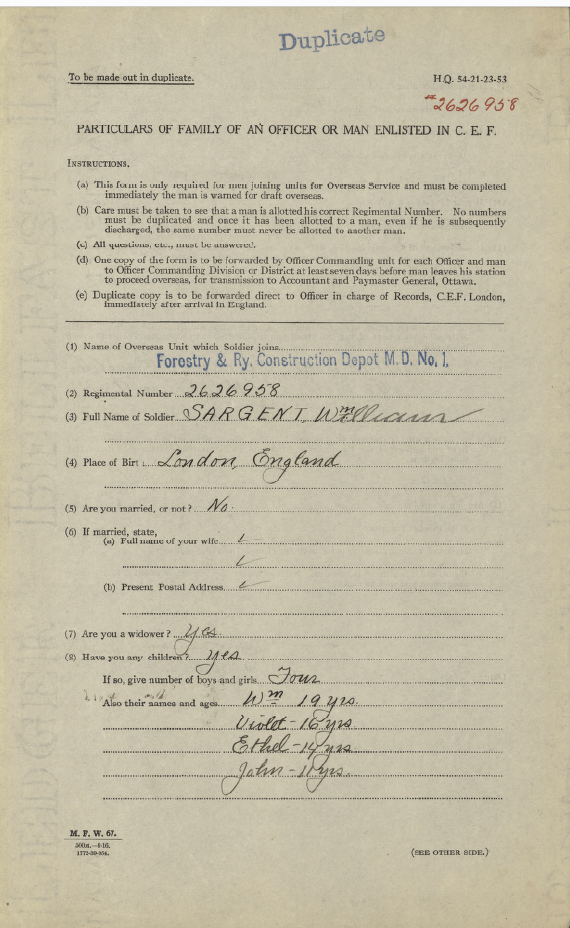 Duplicate
To be made out in duplicate.
H.Q. 54-21-23-53
#2626958
PARTICULARS OF FAMILY OF AN OFFICER OR MAN ENLISTED IN C. E. F.
INSTRUCTIONS.
(a) This form is only required for men joining units for Overseas Service and must be completed
immediately the man is warned for draft overseas.
(b) Care must be taken to see that a man is allotted his correct Regimental Number. No numbers
must be duplicated and once it has been allotted to a man, even if he is subsequently
discharged, the same number must never be allotted to another man.
(c) All questions, etc., must be answered.
(d) One copy of the form is to be forwarded by Officer Commanding unit for each Officer and man
to Officer Commanding Division or District at least seven days before man leaves his station
to proceed overseas, for transmission to Accountant and Paymaster General, Ottawa.
(e) Duplicate copy is to be forwarded direct to Officer in charge of Records, C.E.F. London,
immediately after arrival in England.
(1) Name of Overseas Unit which Soldier joins
Forestry & Ry. Construction Depot M. D. No. 1,
(2) Regimental Number 2626958
(3) Full Name of Soldier SARGENT, William
(4) Place of Birth London, England
(5) Are you married, or not? No.
(6) If married, state,
(a) Full name of your wife ✓
✓
(b) Present Postal Address ✓
(7) Are you a widower? Yes
(8) Have you any children? Yes
If so, give number of boys and girls Four
Also their names and ages Wm 19 yrs.
Violet - 16 yrs
Ethel - 14 yrs
John - 11 yrs.
M. F. W. 67.
500m.-9-16.
1772-39-954.
(SEE OTHER SIDE.)